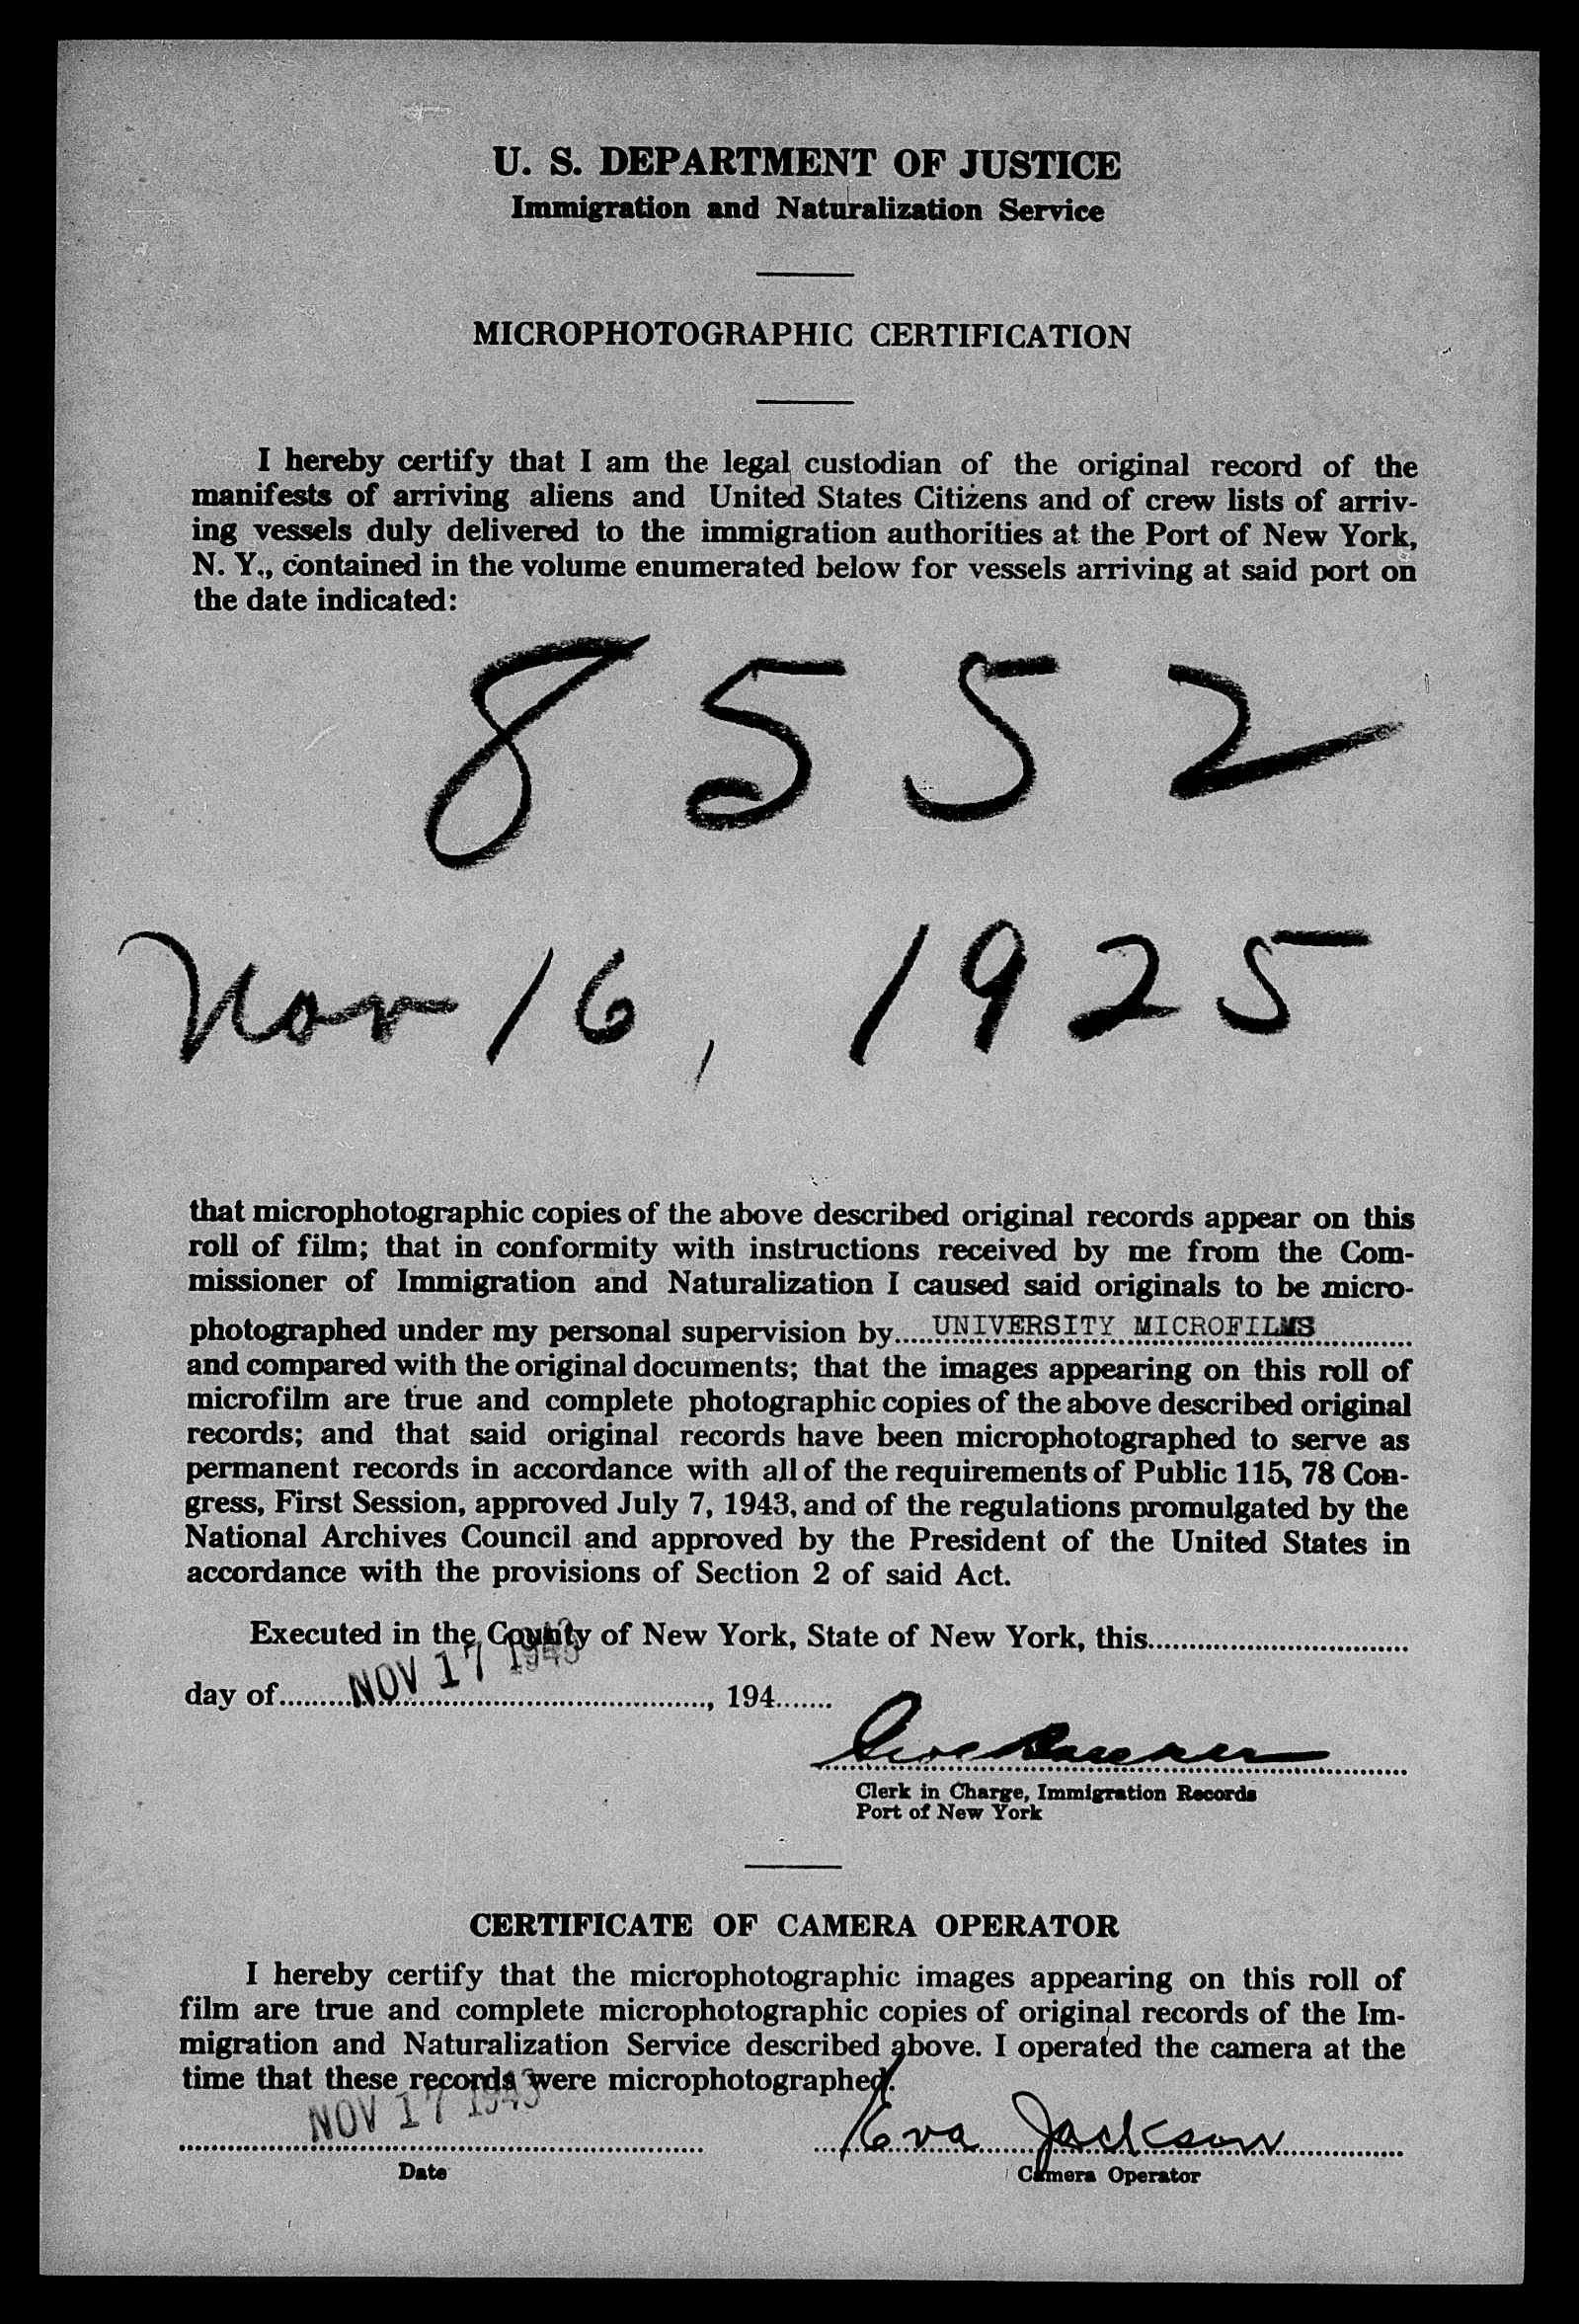 U. S. DEPARTMENT OF JUSTICE
Immigration and Naturalization Service
MICROPHOTOGRAPHIC CERTIFICATION
I hereby certify that I am the legal custodian of the original record of the
manifests of arriving aliens and United States Citizens and of crew lists of arriv-
ing vessels duly delivered to the immigration authorities at the Port of New York,
N. Y., contained in the volume enumerated below for vessels arriving at said port on
the date indicated:
8552
Nov 16, 1925
that microphotographic copies of the above described original records appear on this
roll of film; that in conformity with instructions received by me from the Com-
missioner of Immigration and Naturalization I caused said originals to be micro-
photographed under my personal supervision by.....UNIVERSITY MICROFILMS............
and compared with the original documents; that the images appearing on this roll of
microfilm are true and complete photographic copies of the above described original
records; and that said original records have been microphotographed to serve as
permanent records in accordance with all of the requirements of Public 115, 78 Con-
gress, First Session, approved July 7, 1943, and of the regulations promulgated by the
National Archives Council and approved by the President of the United States in
accordance with the provisions of Section 2 of said Act.
Executed in the County of New York, State of New York, this................................
NOV 17 1943
day of................................................., 194.......
Clerk in Charge, Immigration Records
Port of New York
CERTIFICATE OF CAMERA OPERATOR
I hereby certify that the microphotographic images appearing on this roll of
film are true and complete microphotographic copies of original records of the Im-
migration and Naturalization Service described above. I operated the camera at the
time that these records were microphotographed.
NOV 17 1943
Eva Jackson
Date
Camera Operator